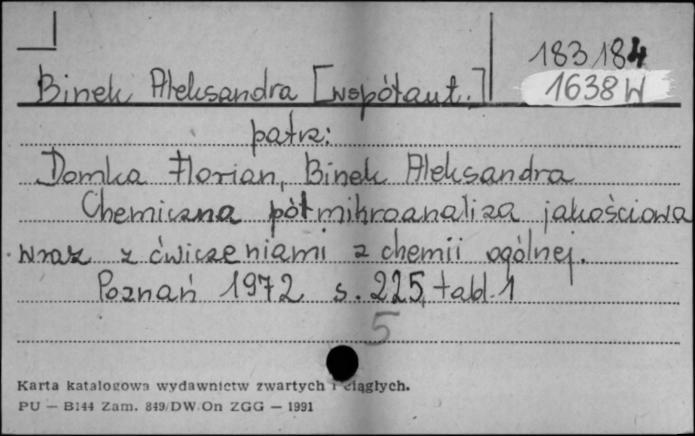 183184
1638 W
Binek Aleksandra [współaut.]
patrz:
Domka Florian, Binek Aleksandra
Chemiczna półmikroanaliza jakościowa
wraz z ćwiczeniami z chemii ogólnej.
Poznań 1972 s. 225, tabl. 1
5
Karta katalogowa wydawnictw zwartych i ciągłych.
PU — B144 Zam. 849/DW/On ZGG — 1991